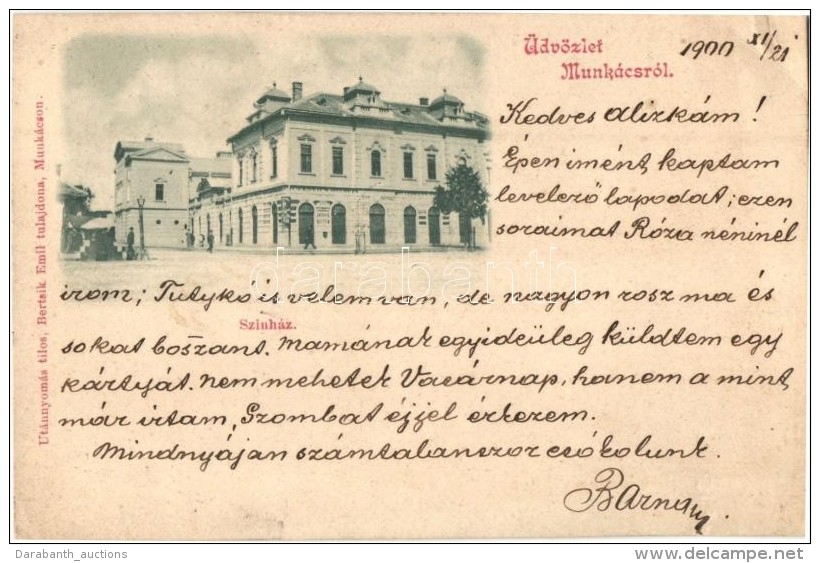 Üdvözlet
Munkácsról.
1900 XI/21
Kedves Alizkám!
Épen imént kaptam
levelező lapodat; ezen
soraimat Róza néninél
irom; Tutykó is velem van, de nagyon rosz ma és
Szinház.
sokat boszant. Mamának egyideüleg küldtem egy
kártyát. Nem mehetek Vasárnap, hanem a mint
már irtam, Szombat éjjel érkezem.
Mindnyájan számtalanszor csókolunk.
Utánnyomás tilos, Bertsik Emil tulajdona, Munkácson.
darabanth
Darabanth_auctions
www.delcampe.net